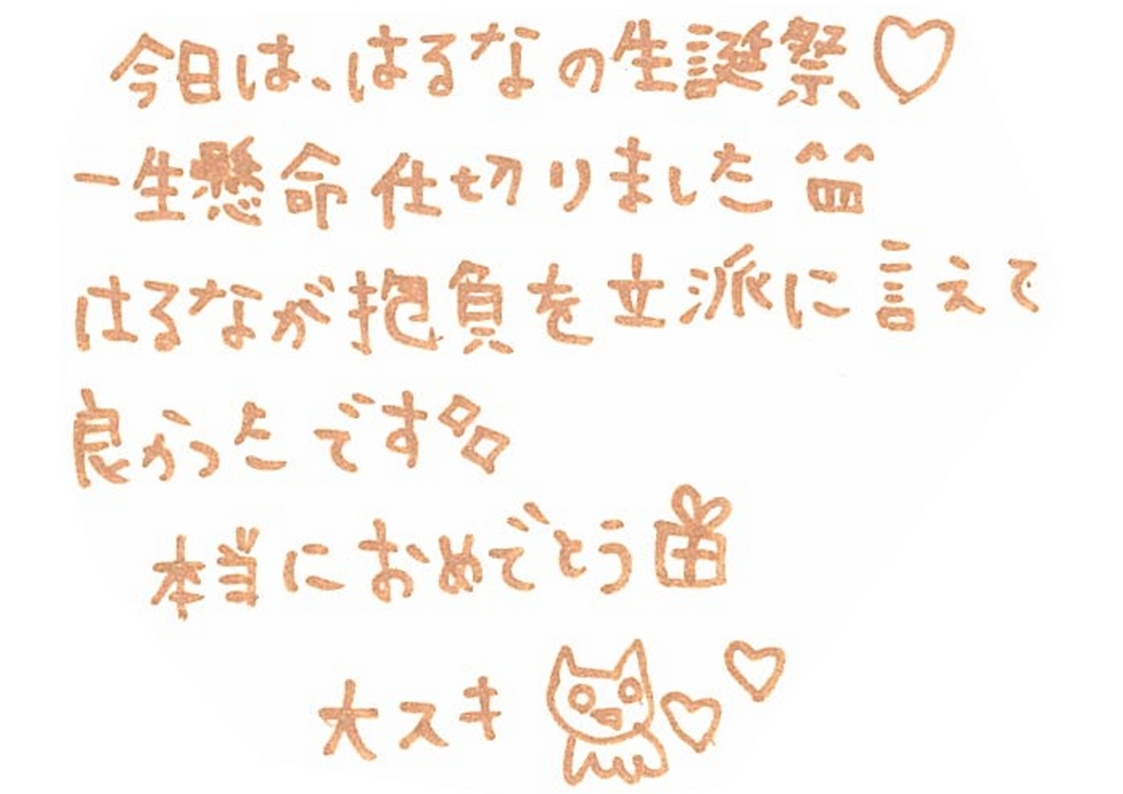 今日は、はるなの生誕祭♡
一生懸命仕切りました
はるなが抱負を立派に言えて
良かったです
本当におめでとう
大スキ